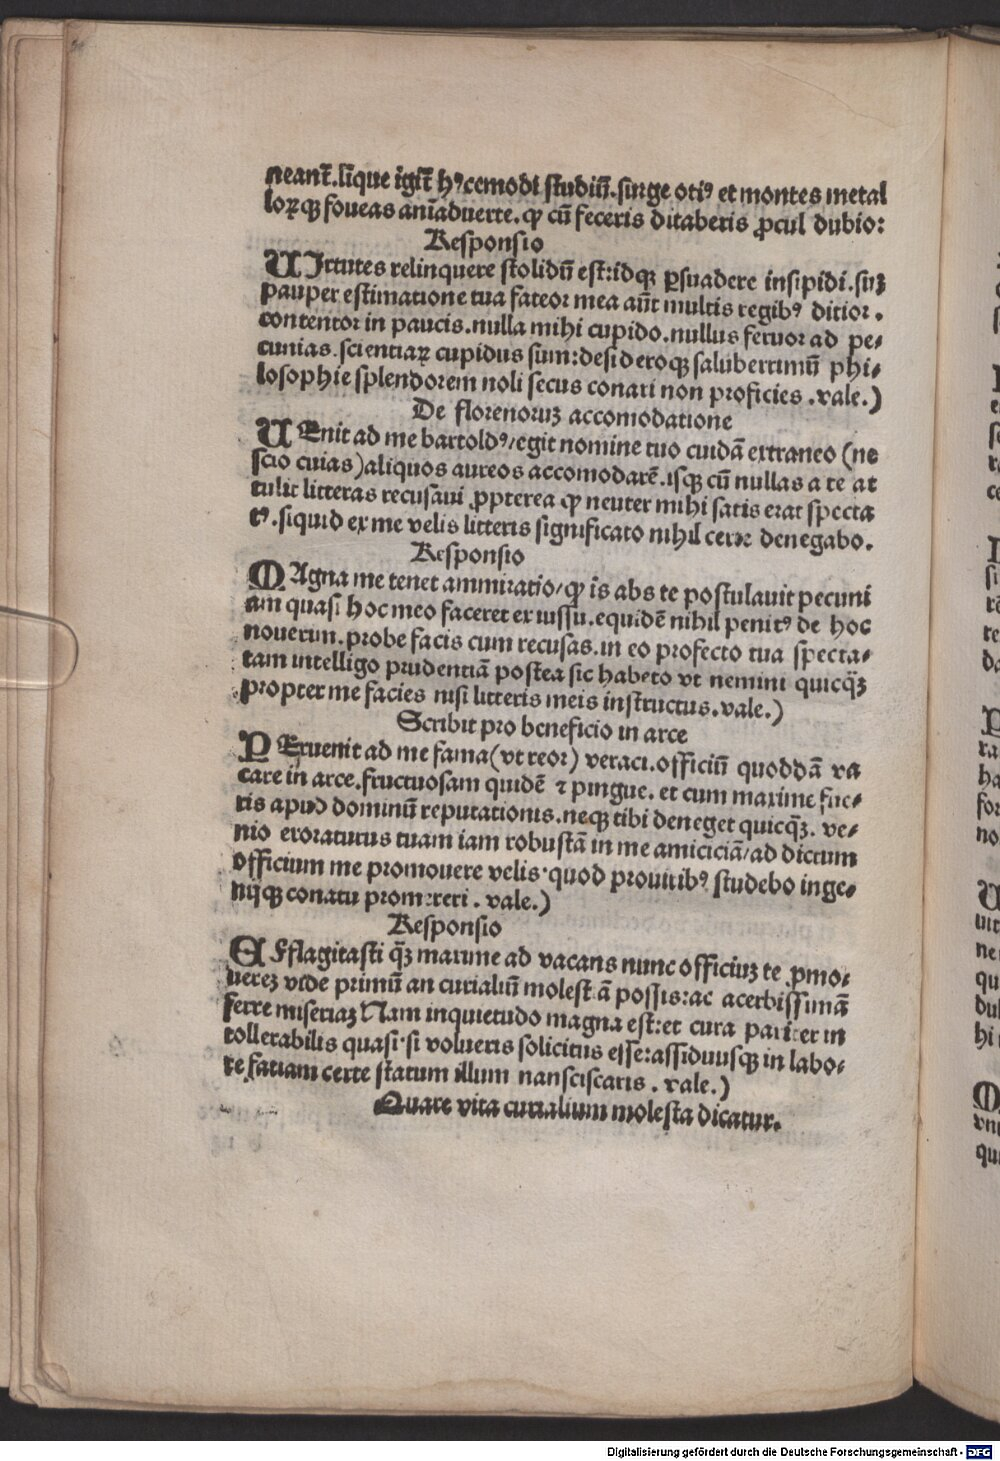 neant̄.līque igit̄ hꝰcemodi studiū.surge otiꝰ et montes metal
loꝝqꝫ foueas aīaduerte.qꝫ cū feceris ditaberis ꝓcul dubio:
Responsio
UIrtutes relinquere stolidū est:idqꝫ ꝑsuadere insipidi.suꝫ
pauper estimatione tua fateor mea aūt multis regibꝰ ditior.
contentor in paucis.nulla mihi cupido.nullus feruor ad pe/
cunias.scientiaꝝ cupidus sum:desideroqꝫ saluberrimū phi/
losophie splendorem noli secus conari non proficies.vale.)
De florenoruꝫ accomodatione
UEnit ad me bartoldꝰ/egit nomine tuo cuidā extraneo (ne
scio cuias)aliquos aureos accomodarē.isqꝫ cū nullas a te at
tulit litteras recusaui ꝓpterea qꝫ neuter mihi satis erat specta
tꝰ.siquid ex me velis litteris significato nihil certe denegabo.
Responsio
MAgna me tenet ammiratio/qꝫ is abs te postulauit pecuni
am quasi hoc meo faceret ex iussu.equidē nihil penitꝰ de hoc
nouerim.probe facis cum recusas.in eo profecto tua specta/
tam intelligo prudentiā postea sic habeto vt nemini quicq̄ꝫ
propter me facies nisi litteris meis instructus.vale.)
Scribit pro beneficio in arce
PEruenit ad me fama(vt reor) veraci.officiū quoddā va
care in arce.fructuosam quidē ⁊ pingue.et cum maxime fue/
ris apud dominū reputationis.neqꝫ tibi deneget quicq̄ꝫ. ve/
nio exoraturus tuam iam robustā in me amiciciā/ad dictum
officium me promouere velis.quod prouiribꝰ studebo inge/
nijqꝫ conatu promereri.vale.)
Responsio
EFflagitasti q̄ꝫ maxime ad vacans nunc officiuꝫ te ꝓmo/
uereꝫ vide primū an curialiū molestiā possis:ac acerbissimā
ferre miseriaꝫ Nam inquietudo magna est:et cura pariter in
tollerabilis quasi.si volueris solicitus esse:assiduusqꝫ in labo/
re faciam certe statum illum nansciscaris.vale.)
Quare vita curialium molesta dicatur.
Digitalisierung gefördert durch die Deutsche Forschungsgemeinschaft - DFG